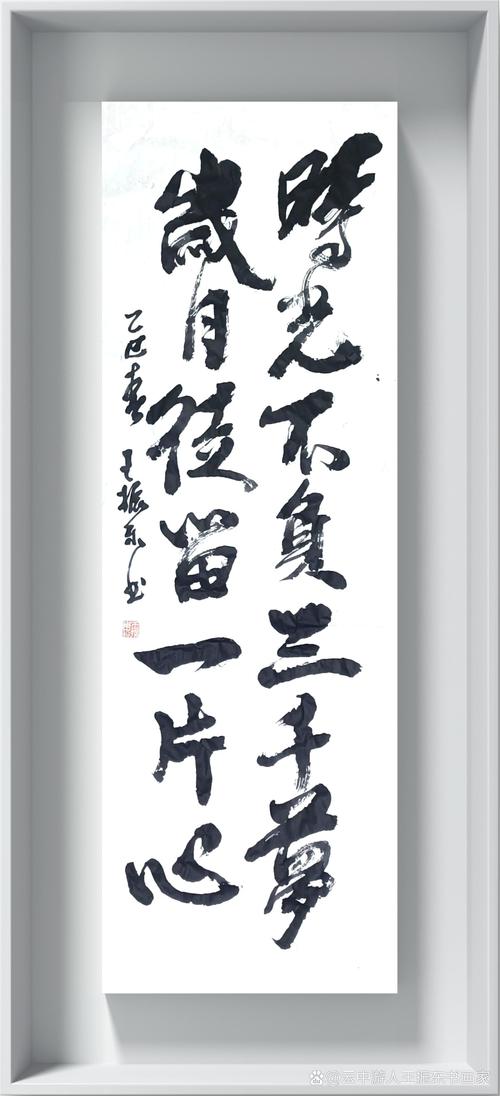 時光不負三千夢
歲月徒留一片心
乙巳春 王振东书
@云中游人王振东书画家